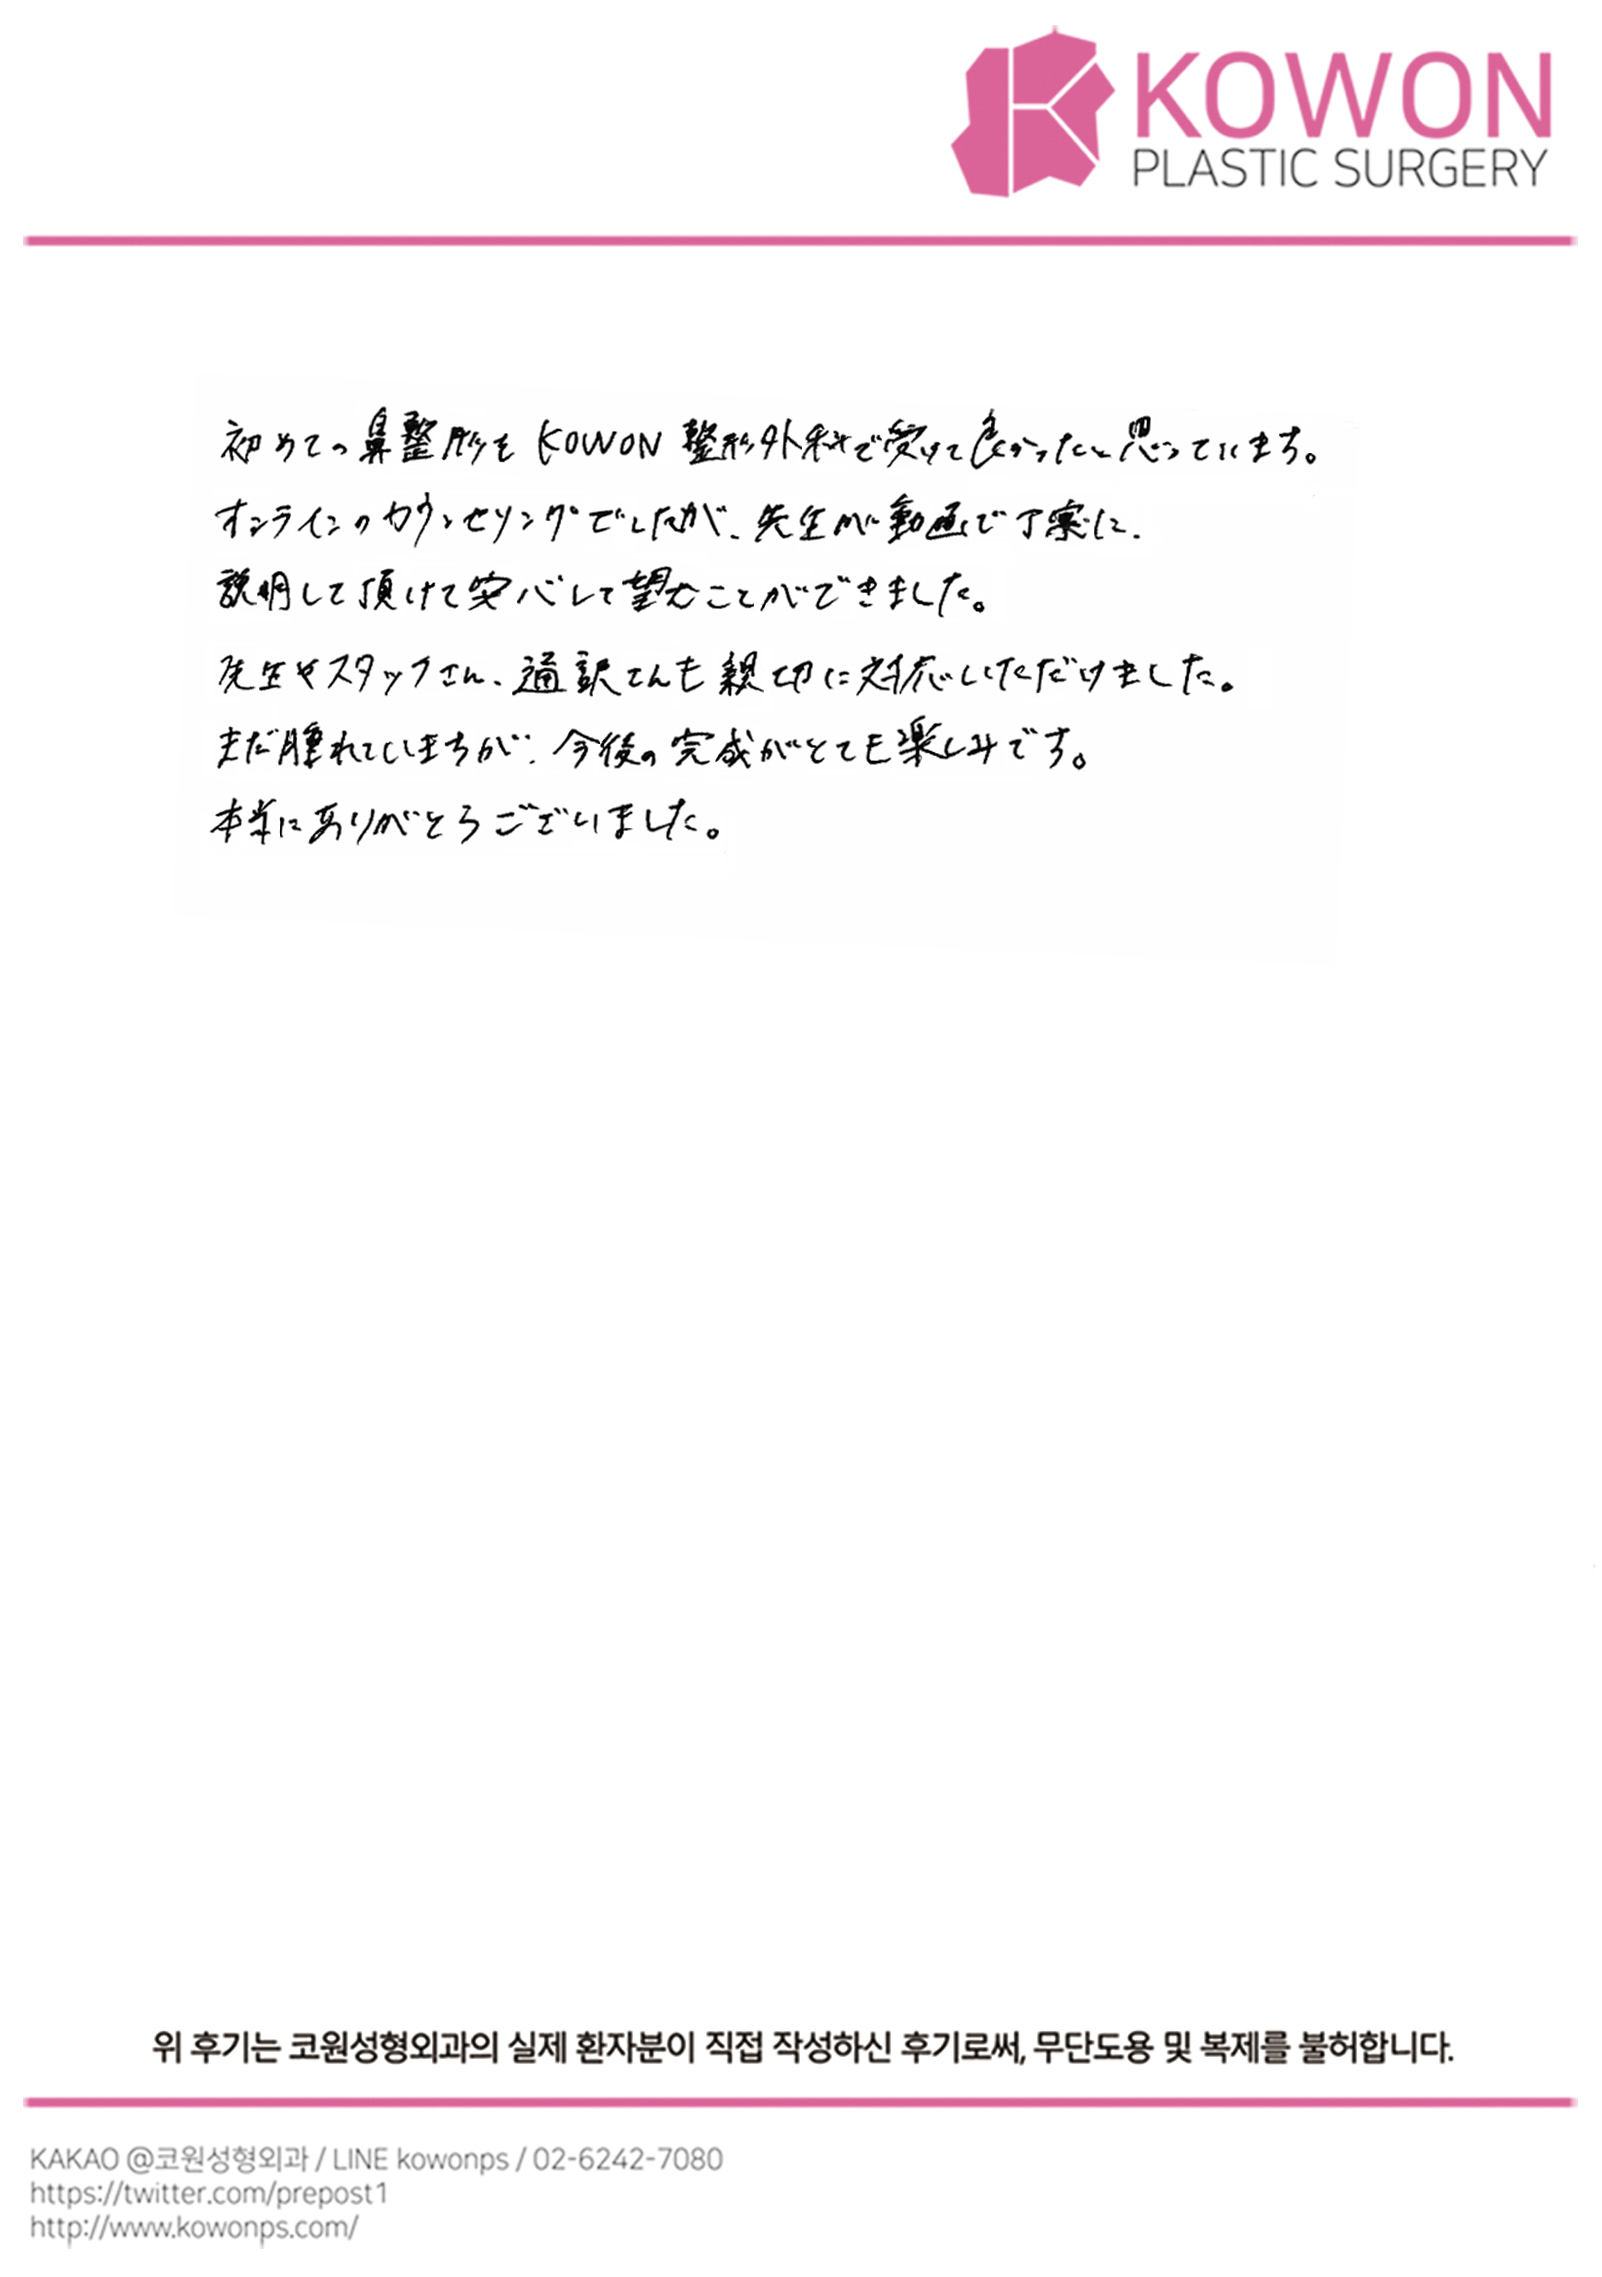 KOWON
PLASTIC SURGERY
初めての鼻整形をKOWON 整形外科で受けて良かったと思っています。
オンラインのカウンセリングでしたが、先生が動画で丁寧に、
説明して頂けて安心して望むことができました。
先生やスタッフさん、通訳さんも親切に対応いただけました。
まだ腫れていますが、今後の完成がとても楽しみです。
本当にありがとうございました。
위 후기는 코원성형외과의 실제 환자분이 직접 작성하신 후기로써, 무단도용 및 복제를 불허합니다.
KAKAO @코원성형외과 / LINE kowonps / 02-6242-7080
https://twitter.com/prepost1
http://www.kowonps.com/